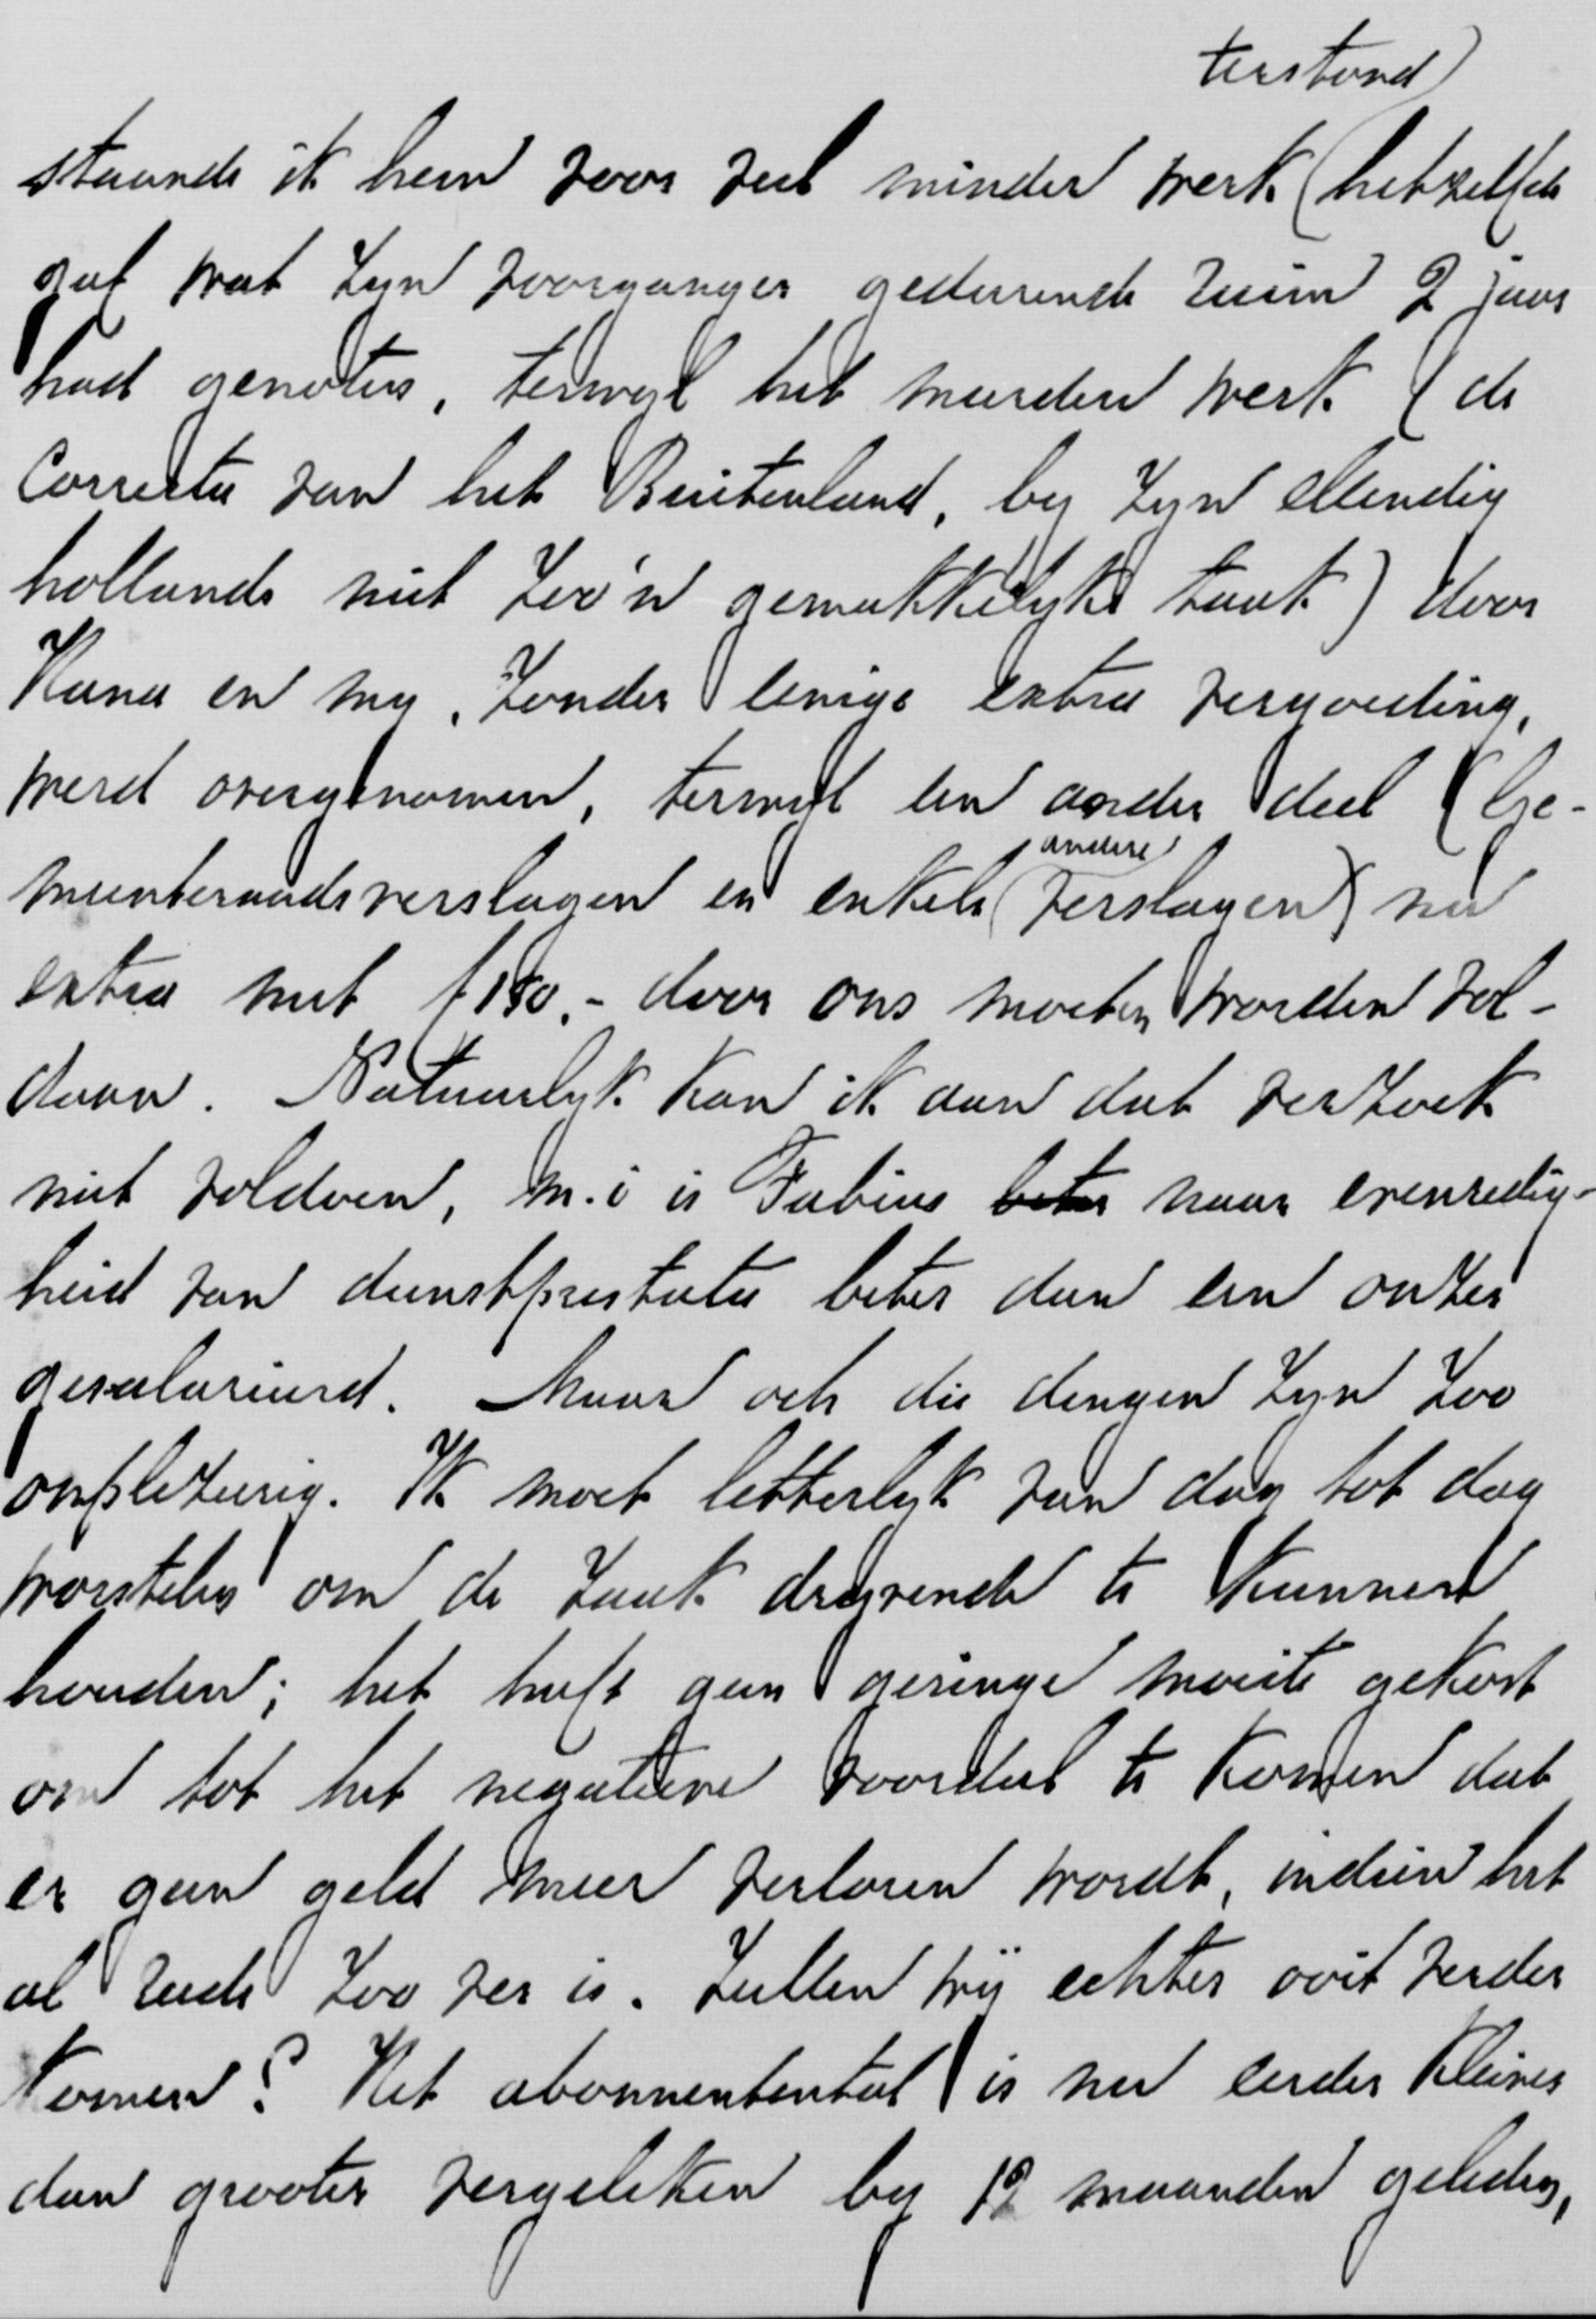 terstond
staande ik hem voor veel minder werk (hetzelfde
gaf wat zyn voorganger gedurende ruim 2 jaar
had genoten, terwyl het meerdere werk (de
Correctie van het Buitenland, by zyn ellendig
hollands niet zoo'n gemakkelyke taak) door
Kana en my, zonder eenige extra vergoeding,
werd overgenomen, terwyl een ander deel (Ge-
andere
meenteraadsverslagen en enkele verslagen) nu
extra met f 150.- door ons moeten worden vol-
daan. Natuurlyk kan ik aan dat verzoek
niet voldoen, m.i is Fabius beter naar evenredig-
heid van dienstprestatie beter dan een onzer
gesalarieerd. Maar och die dingen zyn zoo
onplezierig. Ik moet letterlyk van dag tot dag
worstelen om de zaak dryvende te kunnen
houden; het heeft geen geringe moeite gekost
om tot het negatieve voordeel te komen dat
er geen geld meer verloren wordt, indien het
al reeds zoo ver is. Zullen wij echter ooit verder
komen? Het abonnentental is nu eerder kleiner
dan grooter vergeleken by 12 maanden geleden,